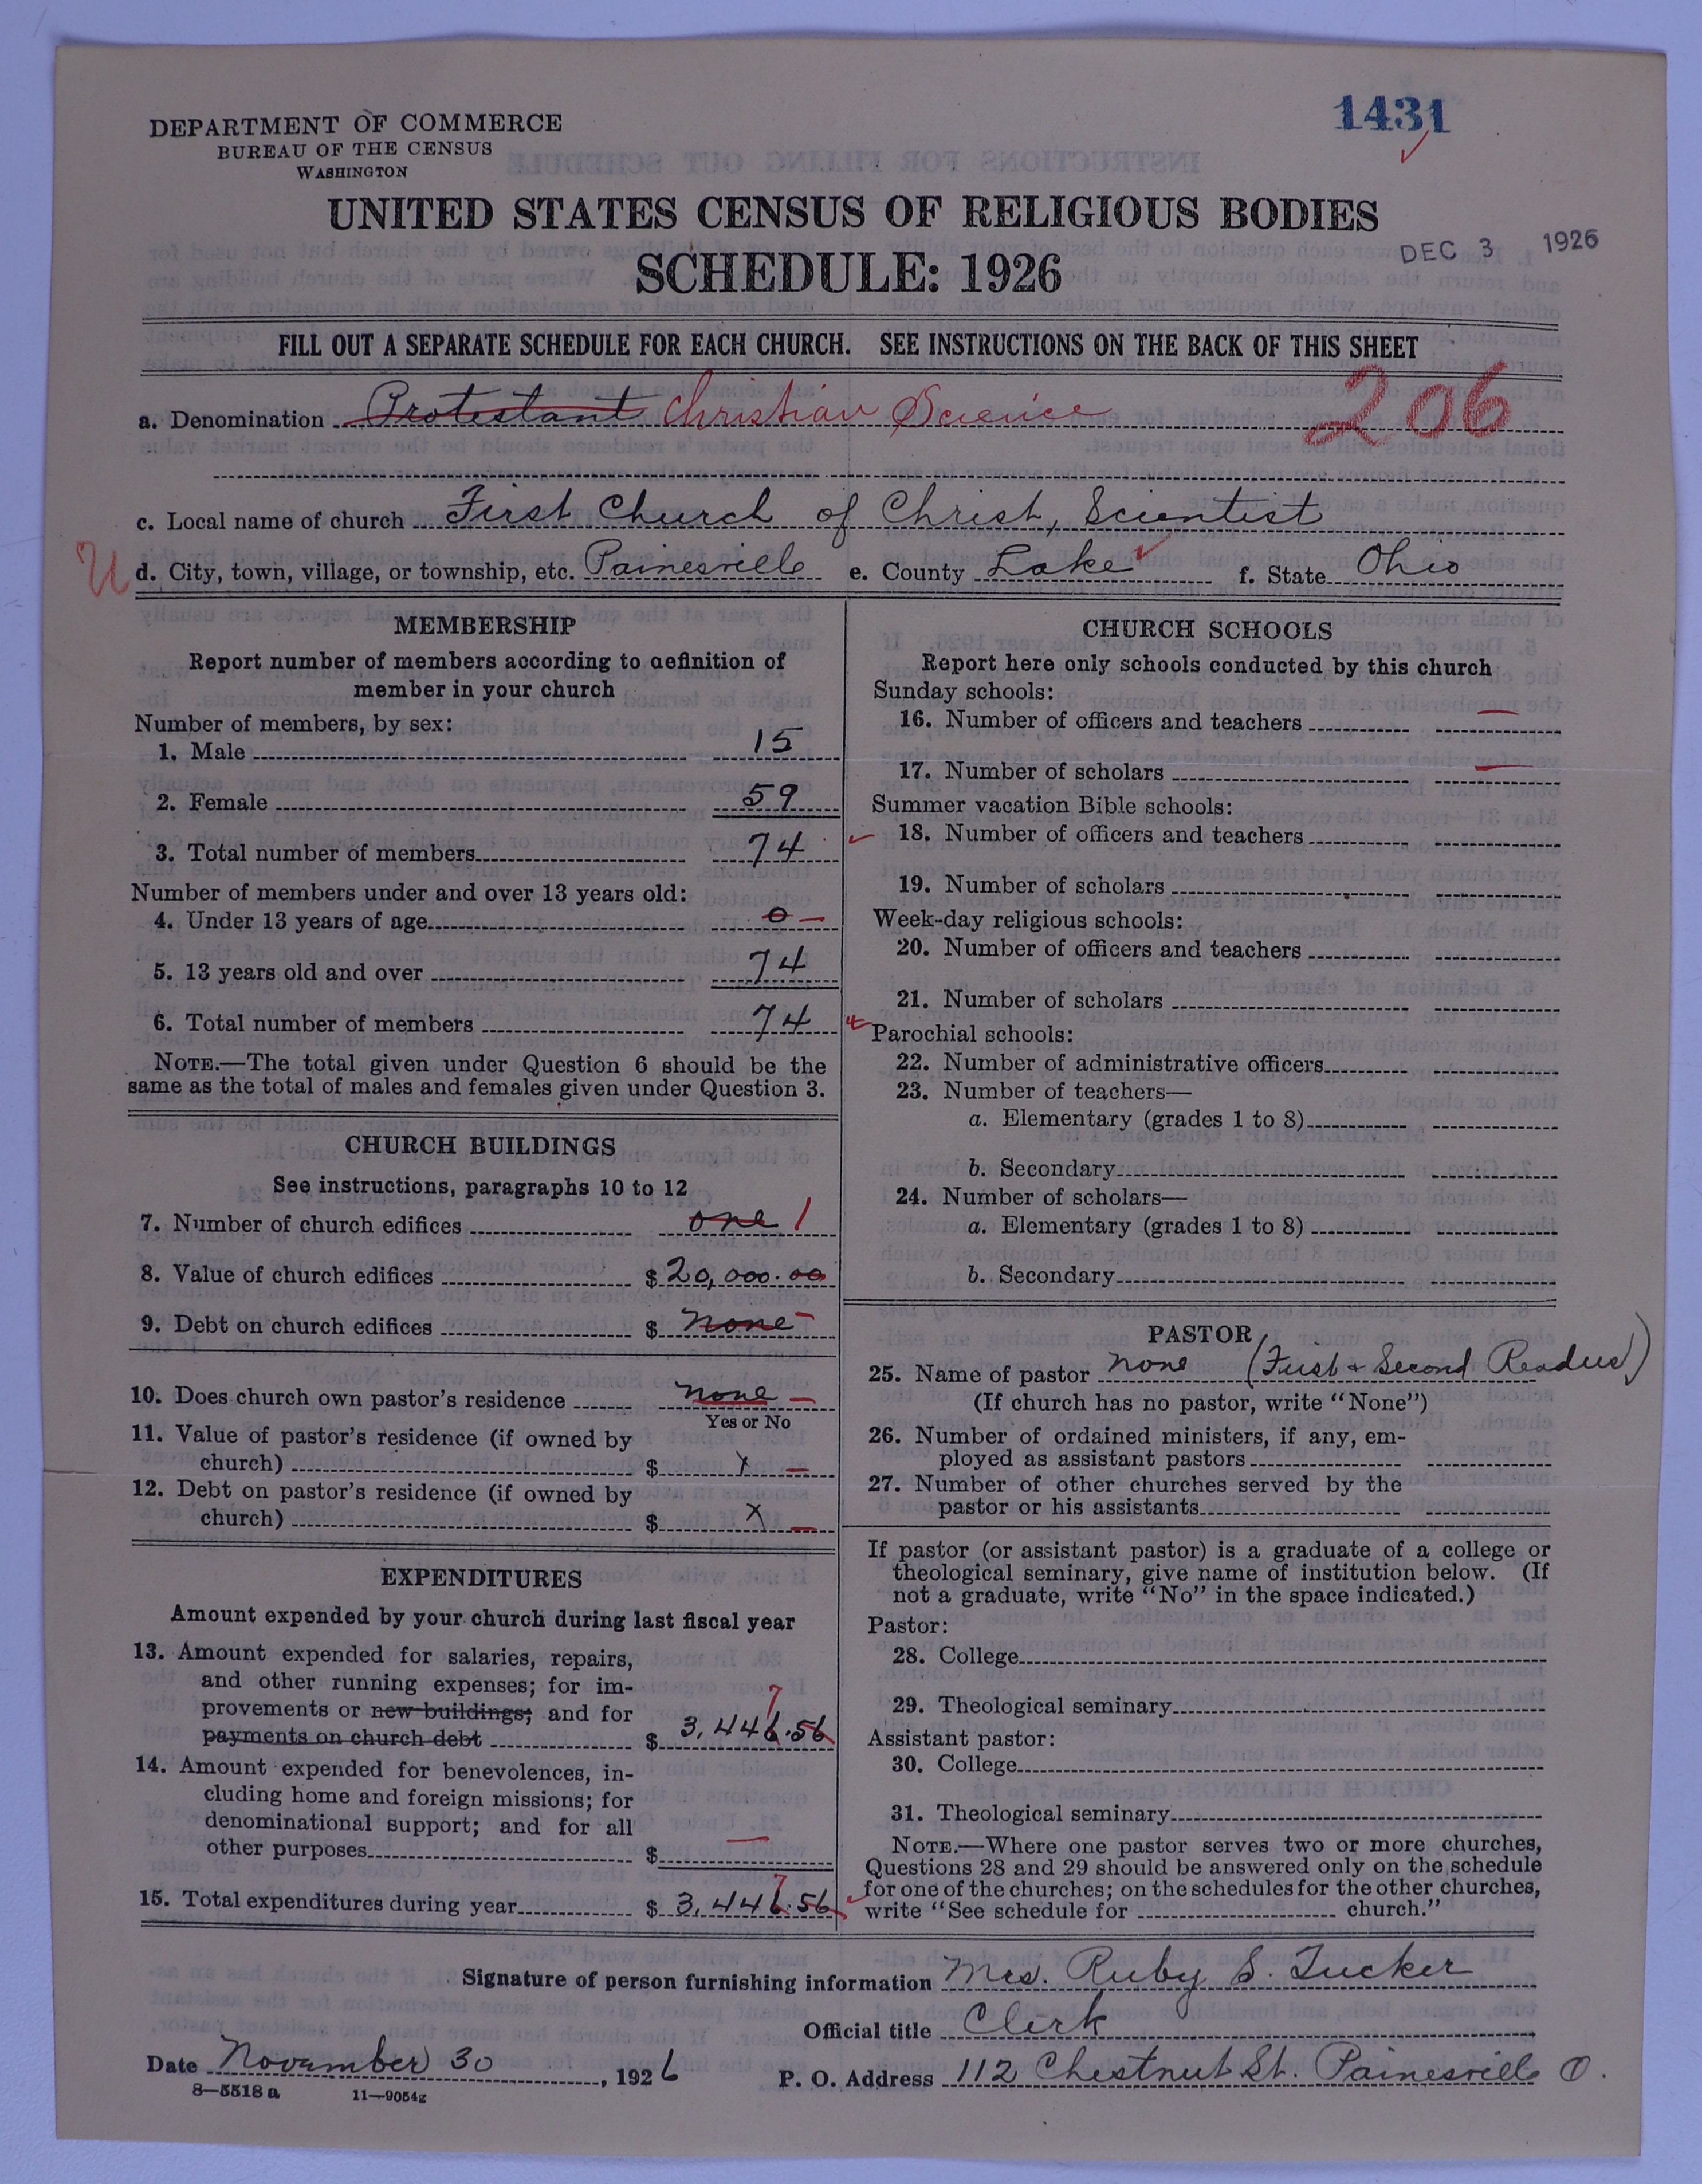 1431
DEPARTMENT OF COMMERCE
BUREAU OF THE CENSUS
WASHINGTON
UNITED STATES CENSUS OF RELIGIOUS BODIES
DEC 3 1926
SCHEDULE: 1926
FILL OUT A SEPARATE SCHEDULE FOR EACH CHURCH. SEE INSTRUCTIONS ON THE BACK OF THIS SHEET
a. Denomination Protestant Christian Science 206
c. Local name of church First Church of Christ, Scientist
U d. City, town, village, or township, etc. Painesville e. County Lake f. State Ohio
MEMBERSHIP
Report number of members according to definition of
member in your church
Number of members, by sex:
1. Male 15
2. Female 59
3. Total number of members 74
Number of members under and over 13 years old:
4. Under 13 years of age 0 —
5. 13 years old and over 74
6. Total number of members 74
NOTE.—The total given under Question 6 should be the
same as the total of males and females given under Question 3.
CHURCH BUILDINGS
See instructions, paragraphs 10 to 12
7. Number of church edifices one 1
8. Value of church edifices $ 20,000.00
9. Debt on church edifices $ none —
10. Does church own pastor's residence none —
Yes or No
11. Value of pastor's residence (if owned by
church) $ x —
12. Debt on pastor's residence (if owned by
church) $ x —
EXPENDITURES
Amount expended by your church during last fiscal year
13. Amount expended for salaries, repairs,
and other running expenses; for im-
provements or new buildings; and for
payments on church debt $ 3,446.56 7
14. Amount expended for benevolences, in-
cluding home and foreign missions; for
denominational support; and for all
other purposes $ —
15. Total expenditures during year $ 3,446.56 7
CHURCH SCHOOLS
Report here only schools conducted by this church
Sunday schools:
16. Number of officers and teachers —
17. Number of scholars —
Summer vacation Bible schools:
18. Number of officers and teachers
19. Number of scholars
Week-day religious schools:
20. Number of officers and teachers
21. Number of scholars
Parochial schools:
22. Number of administrative officers
23. Number of teachers—
a. Elementary (grades 1 to 8)
b. Secondary
24. Number of scholars—
a. Elementary (grades 1 to 8)
b. Secondary
PASTOR
25. Name of pastor none (First & Second Readers)
(If church has no pastor, write "None")
26. Number of ordained ministers, if any, em-
ployed as assistant pastors
27. Number of other churches served by the
pastor or his assistants
If pastor (or assistant pastor) is a graduate of a college or
theological seminary, give name of institution below. (If
not a graduate, write "No" in the space indicated.)
Pastor:
28. College
29. Theological seminary
Assistant pastor:
30. College
31. Theological seminary
NOTE.—Where one pastor serves two or more churches,
Questions 28 and 29 should be answered only on the schedule
for one of the churches; on the schedules for the other churches,
write "See schedule for church."
Signature of person furnishing information Mrs. Ruby S. Tucker
Official title Clerk
Date November 30, 1926 P. O. Address 112 Chestnut St. Painesville O.
8—5518 a 11—9054z